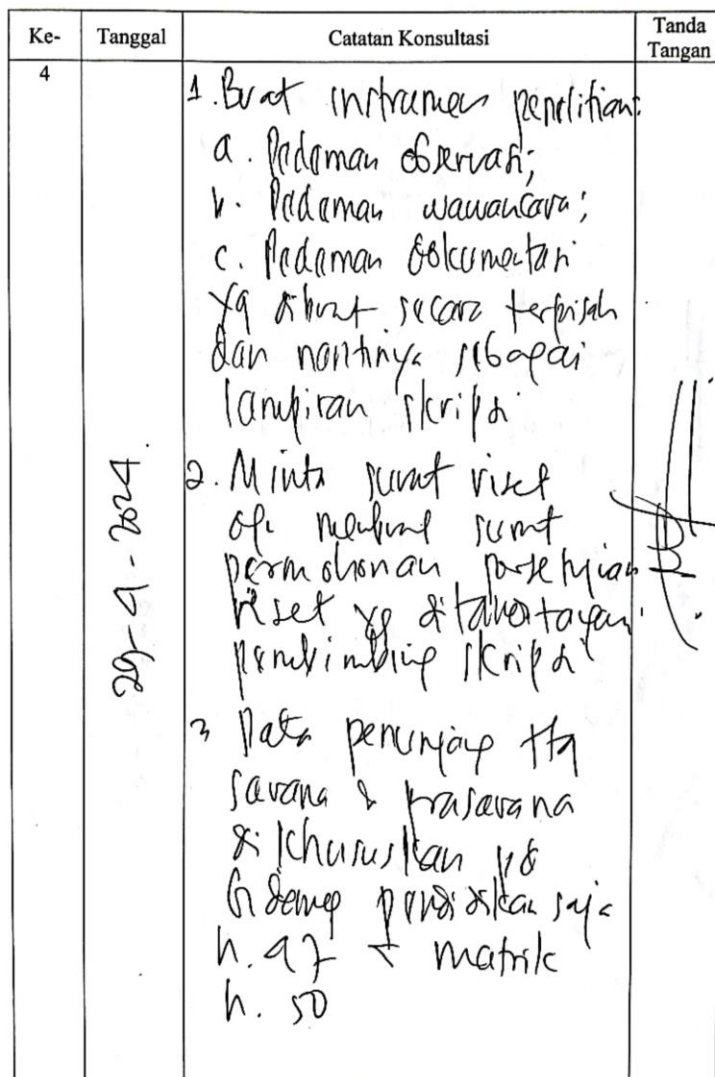 Ke- Tanggal Catatan Konsultasi Tanda Tangan
4
29-4-2024.
1. Buat instrumen penelitian:
a. Pedoman observasi;
b. Pedoman wawancara;
c. Pedoman dokumentasi
yg dibuat secara terpisah
dan nantinya sebagai
lampiran skripsi
2. Minta surat riset
dg. membuat surat
permohonan persetujuan
riset yg ditandatangani
pembimbing skripsi
3 Data penunjang ttg
sarana & prasarana
dikhususkan
bidang pendidikan saja
h. 47 + matrik
h. 50